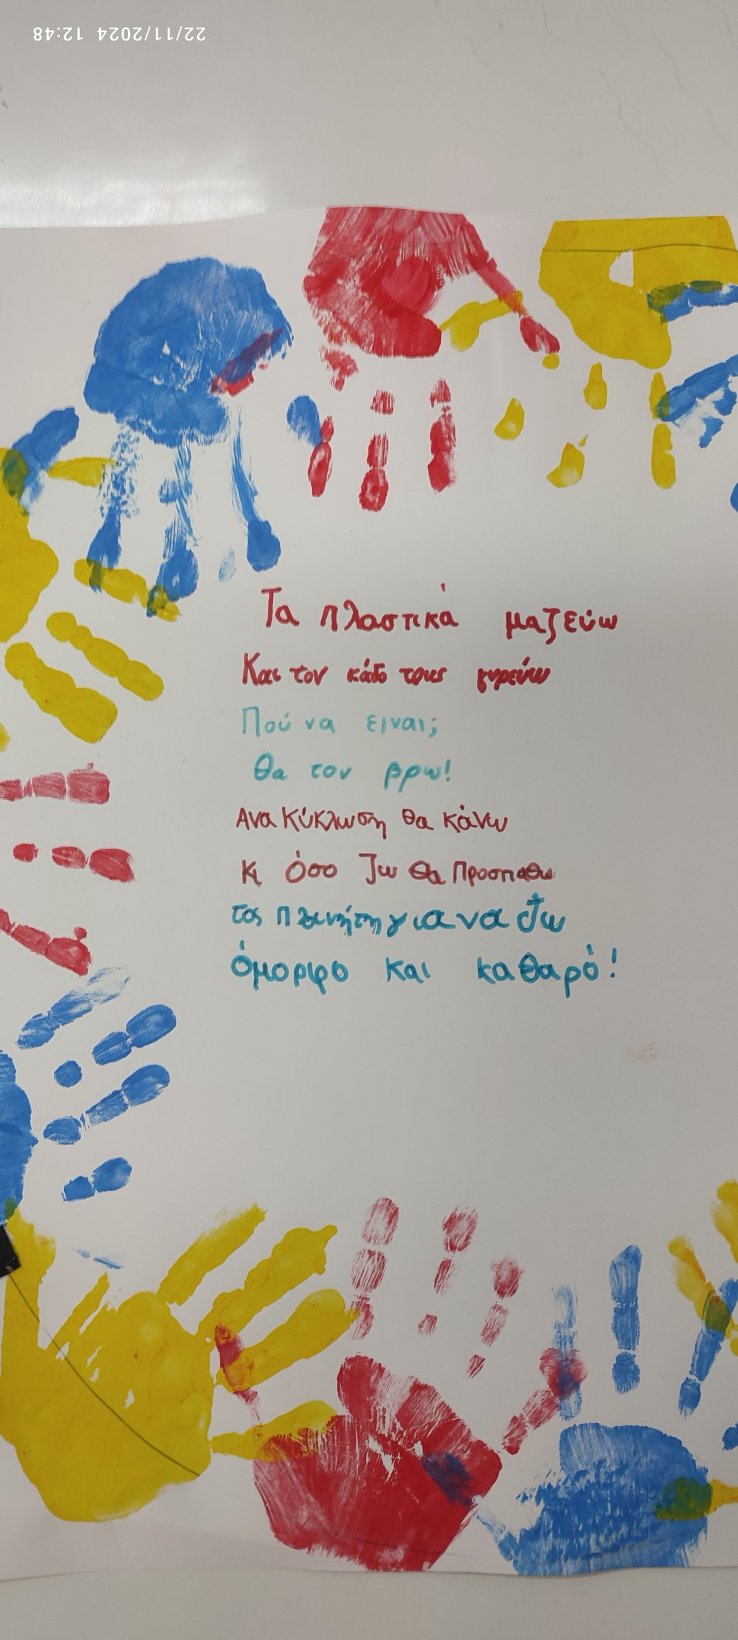 22/11/2024 12:48
Τα πλαστικά μαζεύω
Και τον κάδο τους γυρεύω
Πού να ειναι;
Θα τον βρω!
Ανακύκλωση θα κάνω
Κι όσο ζω θα προσπαθω
τον πλανήτη για να δω
όμορφο και καθαρό!